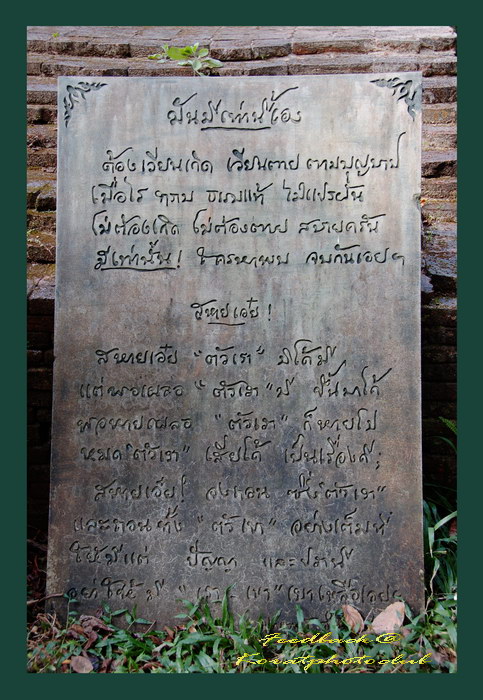 มันมีเท่านี้เอง
ต้องเวียนเกิด เวียนตาย ตามบุญบาป
เมื่อไร ทราบ ธรรมแท้ ไม่แปรผัน
ไม่ต้องเกิด ไม่ต้องตาย สบายครัน
มีเท่านั้น! ใครหาพบ จบกันเอยฯ
สหายเอ๋ย!
สหายเอ๋ย "ตัวเรา" มิได้มี
แต่พอเผลอ "ตัวเรา" มี ขึ้นมาได้
พอหายเผลอ "ตัวเรา" ก็หายไป
หมด "ตัวเรา" เสียได้ เป็นเรื่องดี;
สหายเอ๋ย! จงถอน ซึ่ง "ตัวเรา"
และถอนทั้ง "ตัวเขา" อย่างเต็มที่
ให้มีแต่ ปัญญา และปรานี
อย่าให้มี "เรา-เขา" เบาเหลือเอยฯ
Feedback @
Koratphotoclub